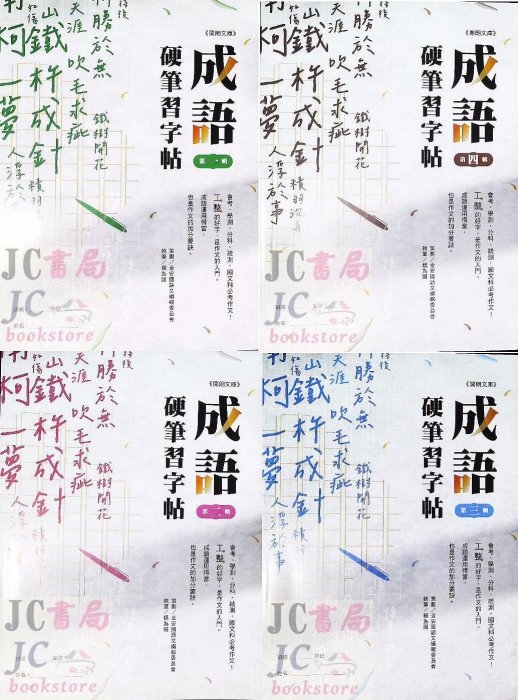 《開朗文庫》
成語
第一輯
硬筆習字帖
勝於無
鐵樹開花
天涯
吹毛求疵
鐵杵成針
積羽
柯一夢
人浮於
會考、學測、分科、統測，國文科必考作文！
工整的好字，是作文的入門。
成語運用得當，
也是作文的加分要訣。
策劃／金安國語文編輯委員會
執筆／楊為國
JC書局
JC
bookstore
《開朗文庫》
成語
第四輯
硬筆習字帖
勝於無
鐵樹開花
天涯
吹毛求疵
鐵杵成針
積羽沉舟
柯一夢
人浮於事
會考、學測、分科、統測，國文科必考作文！
工整的好字，是作文的入門。
成語運用得當，
也是作文的加分要訣。
策劃／金安國語文編輯委員會
執筆／楊為國
JC書局
JC
bookstore
《開朗文庫》
成語
第二輯
硬筆習字帖
勝於無
鐵樹開花
天涯
吹毛求疵
鐵杵成針
積羽
柯一夢
人浮於
會考、學測、分科、統測，國文科必考作文！
工整的好字，是作文的入門。
成語運用得當，
也是作文的加分要訣。
策劃／金安國語文編輯委員會
執筆／楊為國
JC書局
JC
bookstore
《開朗文庫》
成語
第三輯
硬筆習字帖
勝於無
鐵樹開花
天涯
吹毛求疵
鐵杵成針
積羽
柯一夢
人浮於事
會考、學測、分科、統測，國文科必考作文！
工整的好字，是作文的入門。
成語運用得當，
也是作文的加分要訣。
策劃／金安國語文編輯委員會
執筆／楊為國
JC書局
JC
bookstore